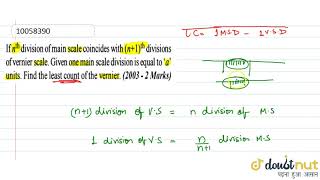 10058390
L C = 1 M S D - 1 V.S D
If nth division of main scale coincides with (n+1)th divisions
of vernier scale. Given one main scale division is equal to 'a'
units. Find the least count of the vernier. (2003 - 2 Marks)
(n+1) division of V.S = n division of M.S
1 division of V.S = n/n+1 division M.S
doubtnut
पढ़ना हुआ आसान